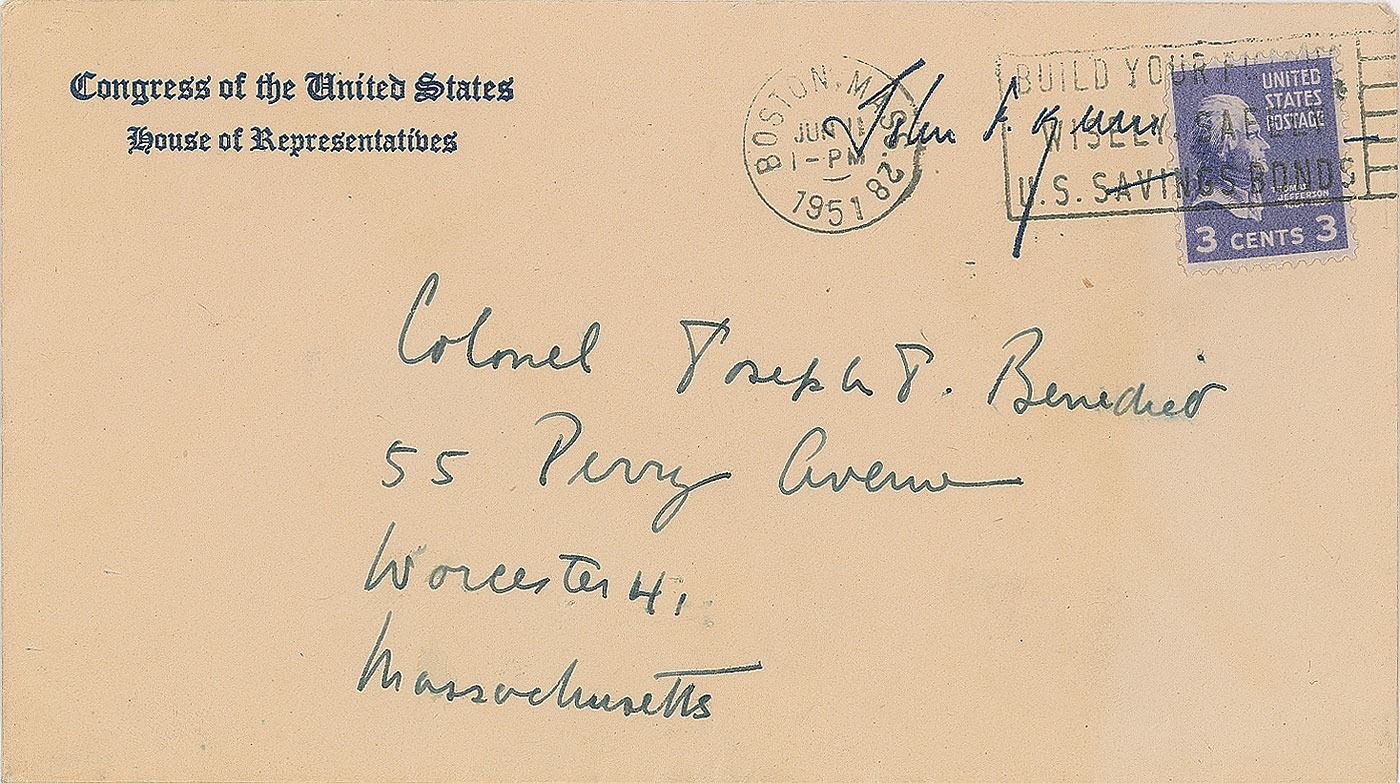 Congress of the United States
House of Representatives
BOSTON, MASS. 28
JUN 11
1-PM
1951
John F. Kennedy
BUILD YOUR FUTURE
WISELY, SAFELY
U.S. SAVINGS BONDS
UNITED
STATES
POSTAGE
THOMAS
JEFFERSON
3 CENTS 3
Colonel Joseph T. Benedict
55 Perry Avenue
Worcester 4,
Massachusetts